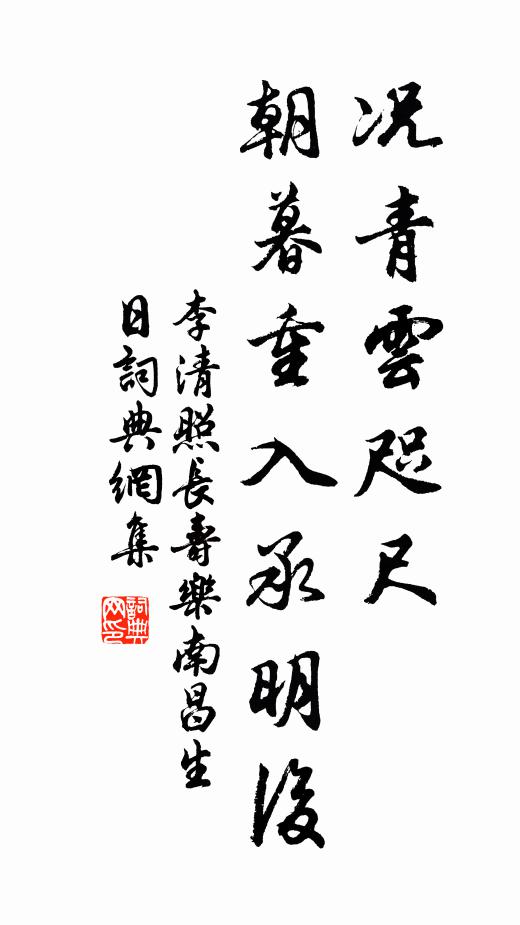 況青雲咫尺
朝暮重入承明後
李清照長壽樂南昌生
日詞典網集
詞典网印